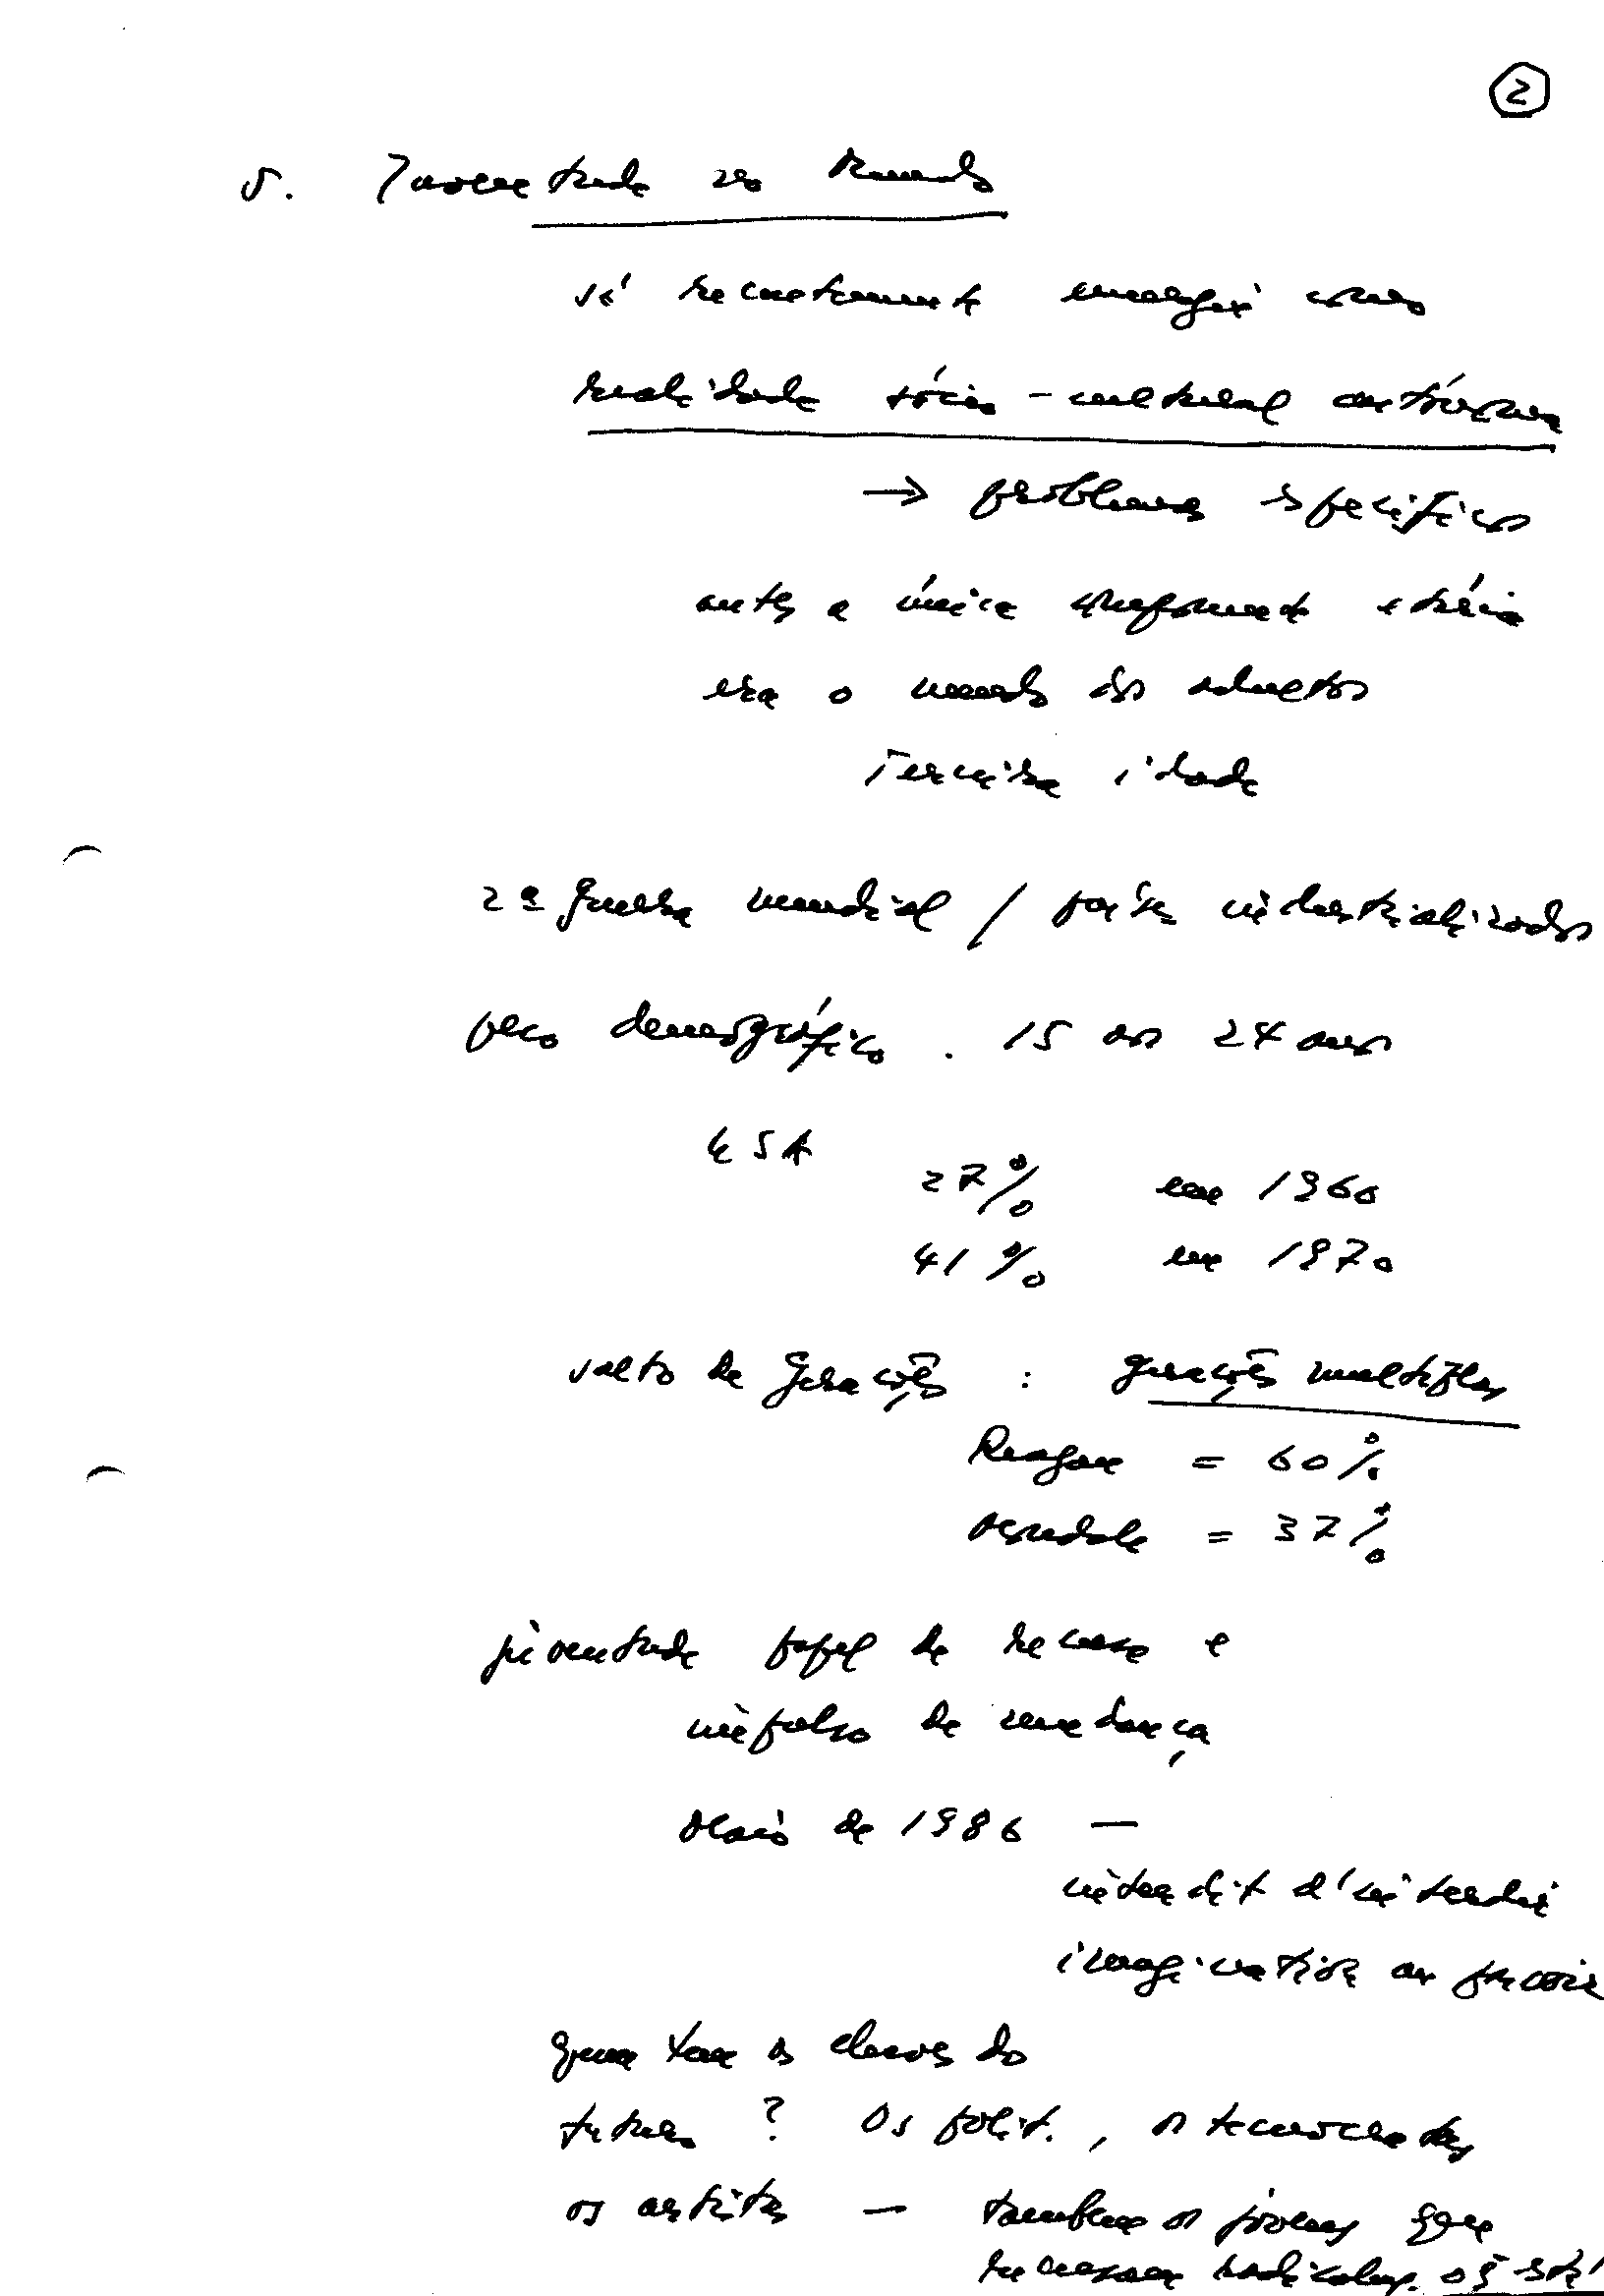 2
5. Juventude no Mundo
só recentemente emergiu como
realidade sócio-cultural autónoma
→ problemas específicos
antes a única etária
era o mundo dos adultos
Terceira idade
2ª guerra mundial / países industrializados
peso demográfico. 15 aos 24 anos
USA
27% em 1960
41% em 1970
salto de gerações : gerações multiplas
Reagan = 60%
Mondale = 37%
juventude papel de recusa e
impulso de mudança
Maio de 1986 —
interdit d'interdir
imagination au pouvoir
quem tem as chaves do
futuro ? Os polit., os tecnocratas
os artistas — tambem os jovens que
recusam